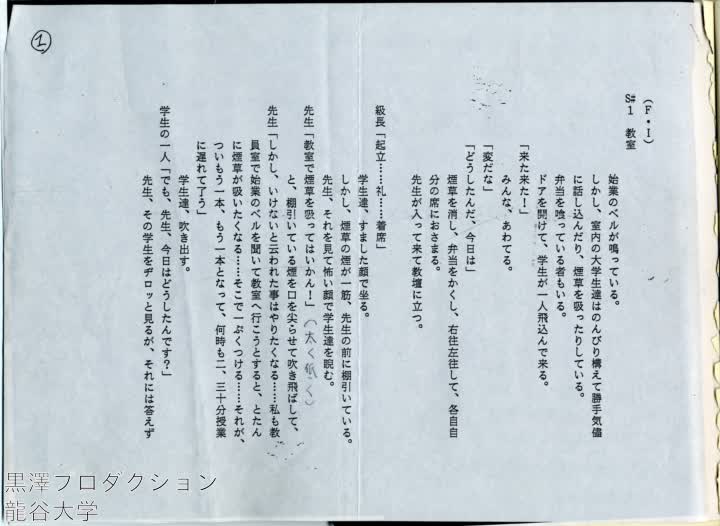 ①
(F・I)
S#1 教室
始業のベルが鳴っている。
しかし、室内の大学生達はのんびり構えて勝手気儘
に話し込んだり、煙草を吸ったりしている。
弁当を喰っている者もいる。
ドアを開けて、学生が一人飛込んで来る。
「来た来た!」
みんな、あわてる。
「変だな」
「どうしたんだ、今日は」
煙草を消し、弁当をかくし、右往左往して、各自自
分の席におさまる。
先生が入って来て教壇に立つ。
級長「起立……礼……着席」
学生達、すました顔で坐る。
しかし、煙草の煙が一筋、先生の前に棚引いている。
先生、それを見て怖い顔で学生達を睨む。
先生「教室で煙草を吸ってはいかん!」(太く低く)
と、棚引いている煙を口を尖らせて吹き飛ばして、
先生「しかし、いけないと云われた事はやりたくなる……私も教
員室で始業のベルを聞いて教室へ行こうとすると、とたん
に煙草が吸いたくなる……そこで一ぷくつける……それが、
ついもう一本、もう一本となって、何時も二、三十分授業
に遅れて了う」
学生達、吹き出す。
学生の一人「でも、先生、今日はどうしたんです?」
先生、その学生をヂロッと見るが、それには答えず
黒澤プロダクション
龍谷大学